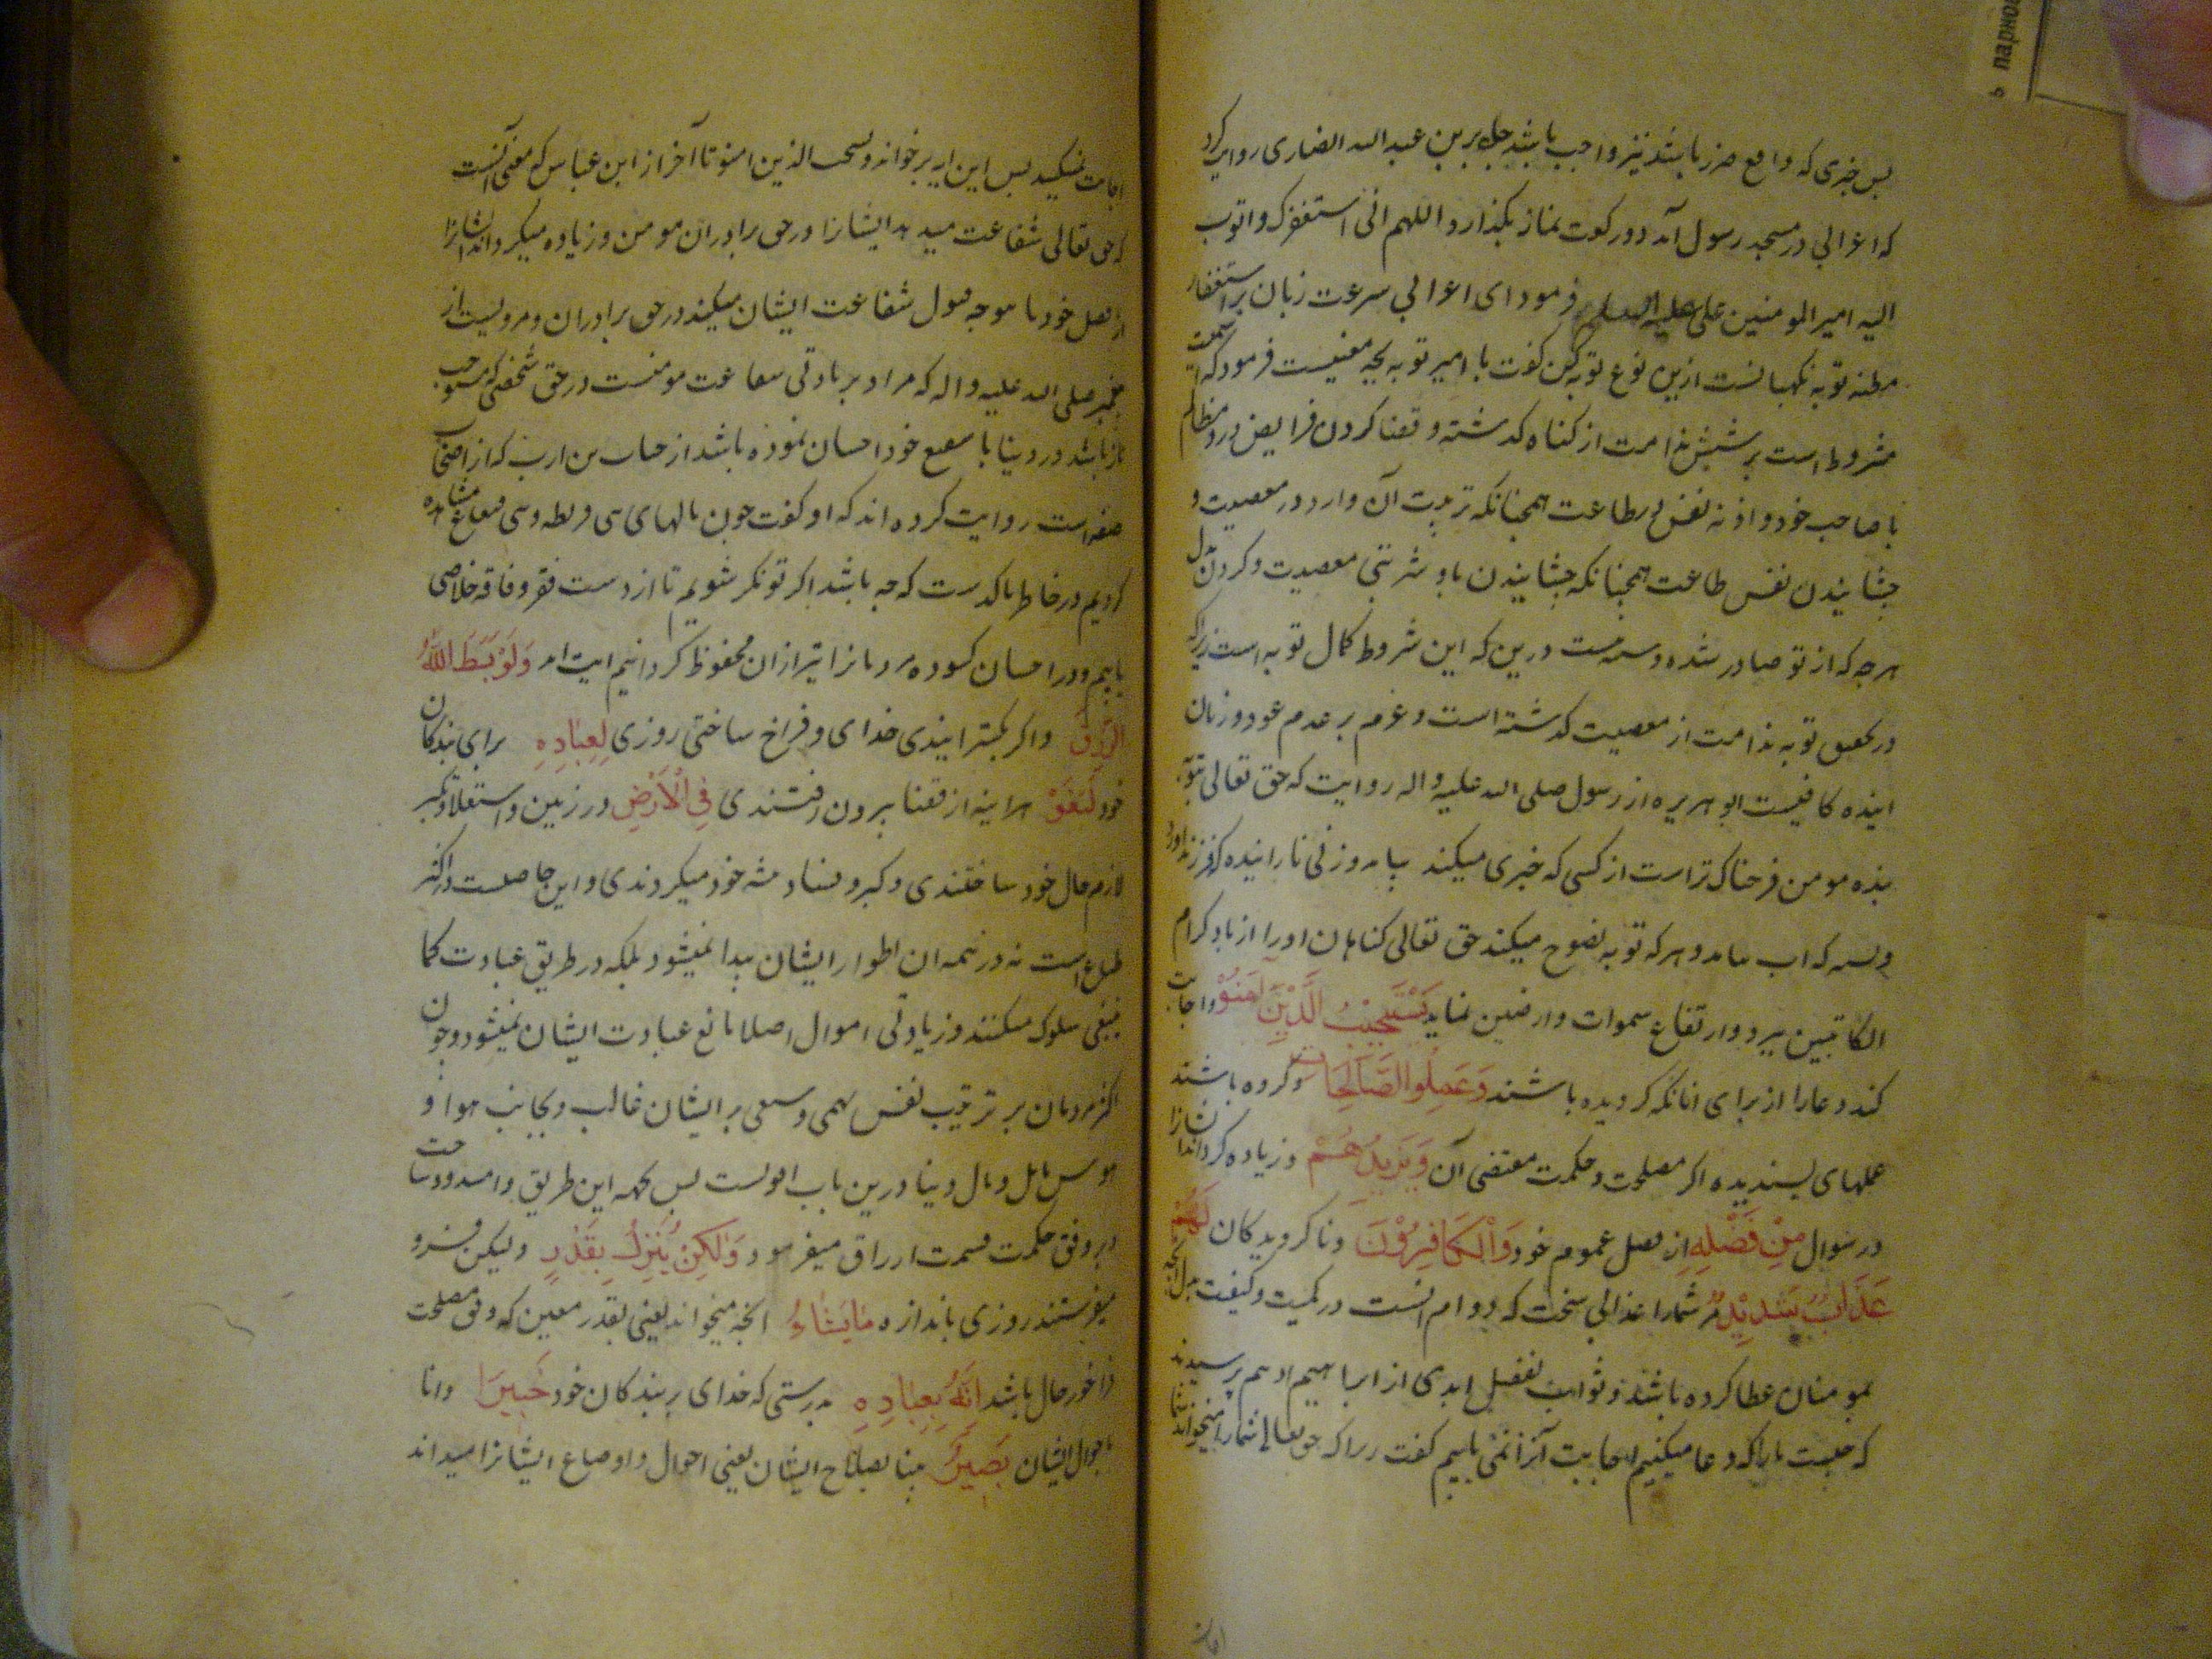 پس چیزی که دافع ضرر باشد نیز واجب باشد جابر بن عبد الله انصاری روایت کرد
که اعرابی در مسجد رسول آمد دو رکعت نماز بگذارد و اللهم انی استغفرک و اتوب
الیه امیر المومنین علی علیه السلام فرمود ای اعرابی سرعت زبان بر استغفار
توبه ازین نوع توبه کن گفت یا امیر توبه بچه معنیست فرمود که
مشروط است بر شش ندامت از کناه کذشته و قضا کردن فرایض و رد مظالم
با صاحب خود و نفس در طاعت همچنانکه تربیت آن در معصیت و
چشانیدن نفس طاعت همچنانکه چشانیدن باو شربتی معصیت و کردن بدل
هرچه که از تو صادر شده درین که این شروط کمال توبه است زیراکه
در تحقق توبه ندامت از معصیت کذشته است و عزم بر عدم عود در زمان
اینده کافیست ابو هریره از رسول صلی الله علیه و اله روایت که حق تعالی بتوبه
بنده مومن فرحناک تر است از کسی که خبری میکند
و هر که توبه نصوح میکند حق تعالی کناهان او را از یاد کرام
الکاتبین ببرد و ارتفاع سموات و ارضین نماید یَسْتَجِیبُ الَّذِینَ آمَنُوْا و اجابت
کند دعا را از برای انانکه کرویده باشند وَعَمِلُوا الصَّالِحَاتِ و کرده باشند
عملهای پسندیده اکر مصلحت و حکمت مقتضی آن وَیَزِیدُهُمْ و زیاده کرداند ایشانرا
در سوال مِنْ فَضْلِهِ از فضل عموم خود وَالْکَافِرُوْنَ و ناکرویدکان لَهُمْ
عَذَابٌ شَدِیْدٌ مر شما را عذابی سخت که دوام است در کمیت و کیفیت بدل انچه
بمومنان عطا کرده باشند و ثواب تفضل ابدی از ابراهیم ادهم پرسیدند
که چیست ما را که دعا میکنیم اجابت آنرا نمی یابیم کفت زیرا که حق تعالی شما را میخواند شما
اجابت
اجابت نمیکنید پس این ایه بر خواند و یستجیب الذین امنوا تا آخر از ابن عباس که معنی آنست
که حق تعالی شفاعت میدهد ایشانرا در حق برادران مومن و زیاده میکرداند ایشانرا
از فضل خود شفاعت ایشان میکند در حق برادران و مرویست از
پیغمبر صلی الله علیه و اله که مراد بزیادتی شفاعت مومنست در حق شخصی که مستوجب
نار باشد در دنیا با شفیع خود احسان نموده باشد از خباب بن ارت که از اصحاب
صفه است روایت کرده اند که او کفت چون مالهای بنی قریظه و بنی قینقاع مشاهده
کردیم در خاطر ما کذشت که چه باشد اکر تونکر شویم تا از دست فقر و فاقه خلاصی
یابیم و در احسان کشوده مردمانرا نیز از ان محفوظ کردانیم ایت امد وَلَوْ بَسَطَ اللّٰهُ
الرِّزْقَ و اکر بکسترانیدی خدای و فراخ ساختی روزی لِعِبَادِهِ برای بندکان
خود لَبَغَوْ هراینه از قضا بیرون رفتندی فِی الْاَرْضِ در زمین و استعلا و تکبر
لازم حال خود ساختندی و کبر و فساد پیشه خود میکردندی و این خاصیت در اکثر
طباع است نه در همه ان اطوار ایشان پیدا نمیشود بلکه در طریق عبادت کما
ینبغی سلوک میکنند و زیادتی اموال اصلا مانع عبادت ایشان نمیشود و چون
اکثر مردمان بر ترتیب نفس بهیمی و سبعی بر ایشان غالب و بجانب هوا و
هوس مایل و مال دنیا درین باب پس بجهة این طریق را مسدود ساخت
و بر وفق حکمت قسمت ارزاق میفرمود وَلٰکِنْ یُنَزِّلُ بِقَدَرٍ و لیکن فرو
میفرستند روزی باندازه مَا یَشَاءُ انچه میخواند یعنی بقدر معین که وفق مصلحت
فراخور حال باشد اِنَّهُ بِعِبَادِهِ بدرستی که خدای بر بندکان خود خَبِیْرًا دانا
باحوال ایشان بَصِیْرٌ بینا بصلاح ایشان یعنی احوال و اوضاع ایشانرا میداند